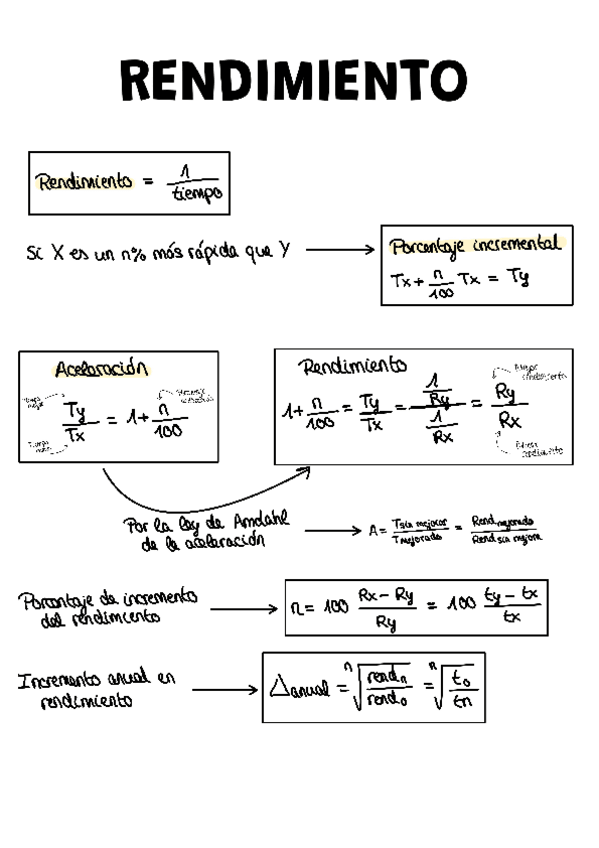 RENDIMIENTO
Rendimiento = 1/tiempo
Si X es un n% más rápida que Y →
Porcentaje incremental
Tx + n/100 Tx = Ty
Aceleración
Ty/Tx = 1 + n/100
Rendimiento
1 + n/100 = Ty/Tx = (1/Ry)/(1/Rx) = Ry/Rx
Por la ley de Amdahl
de la aceleración
→ A = T sin mejorar/T mejorado = Rend mejorado/Rend sin mejora
Porcentaje de incremento
del rendimiento
→ n = 100 (Rx - Ry)/Ry = 100 (ty - tx)/tx
Incremento anual en
rendimiento
→ △anual = ⁿ√(rendn/rend0) = ⁿ√(t0/tn)